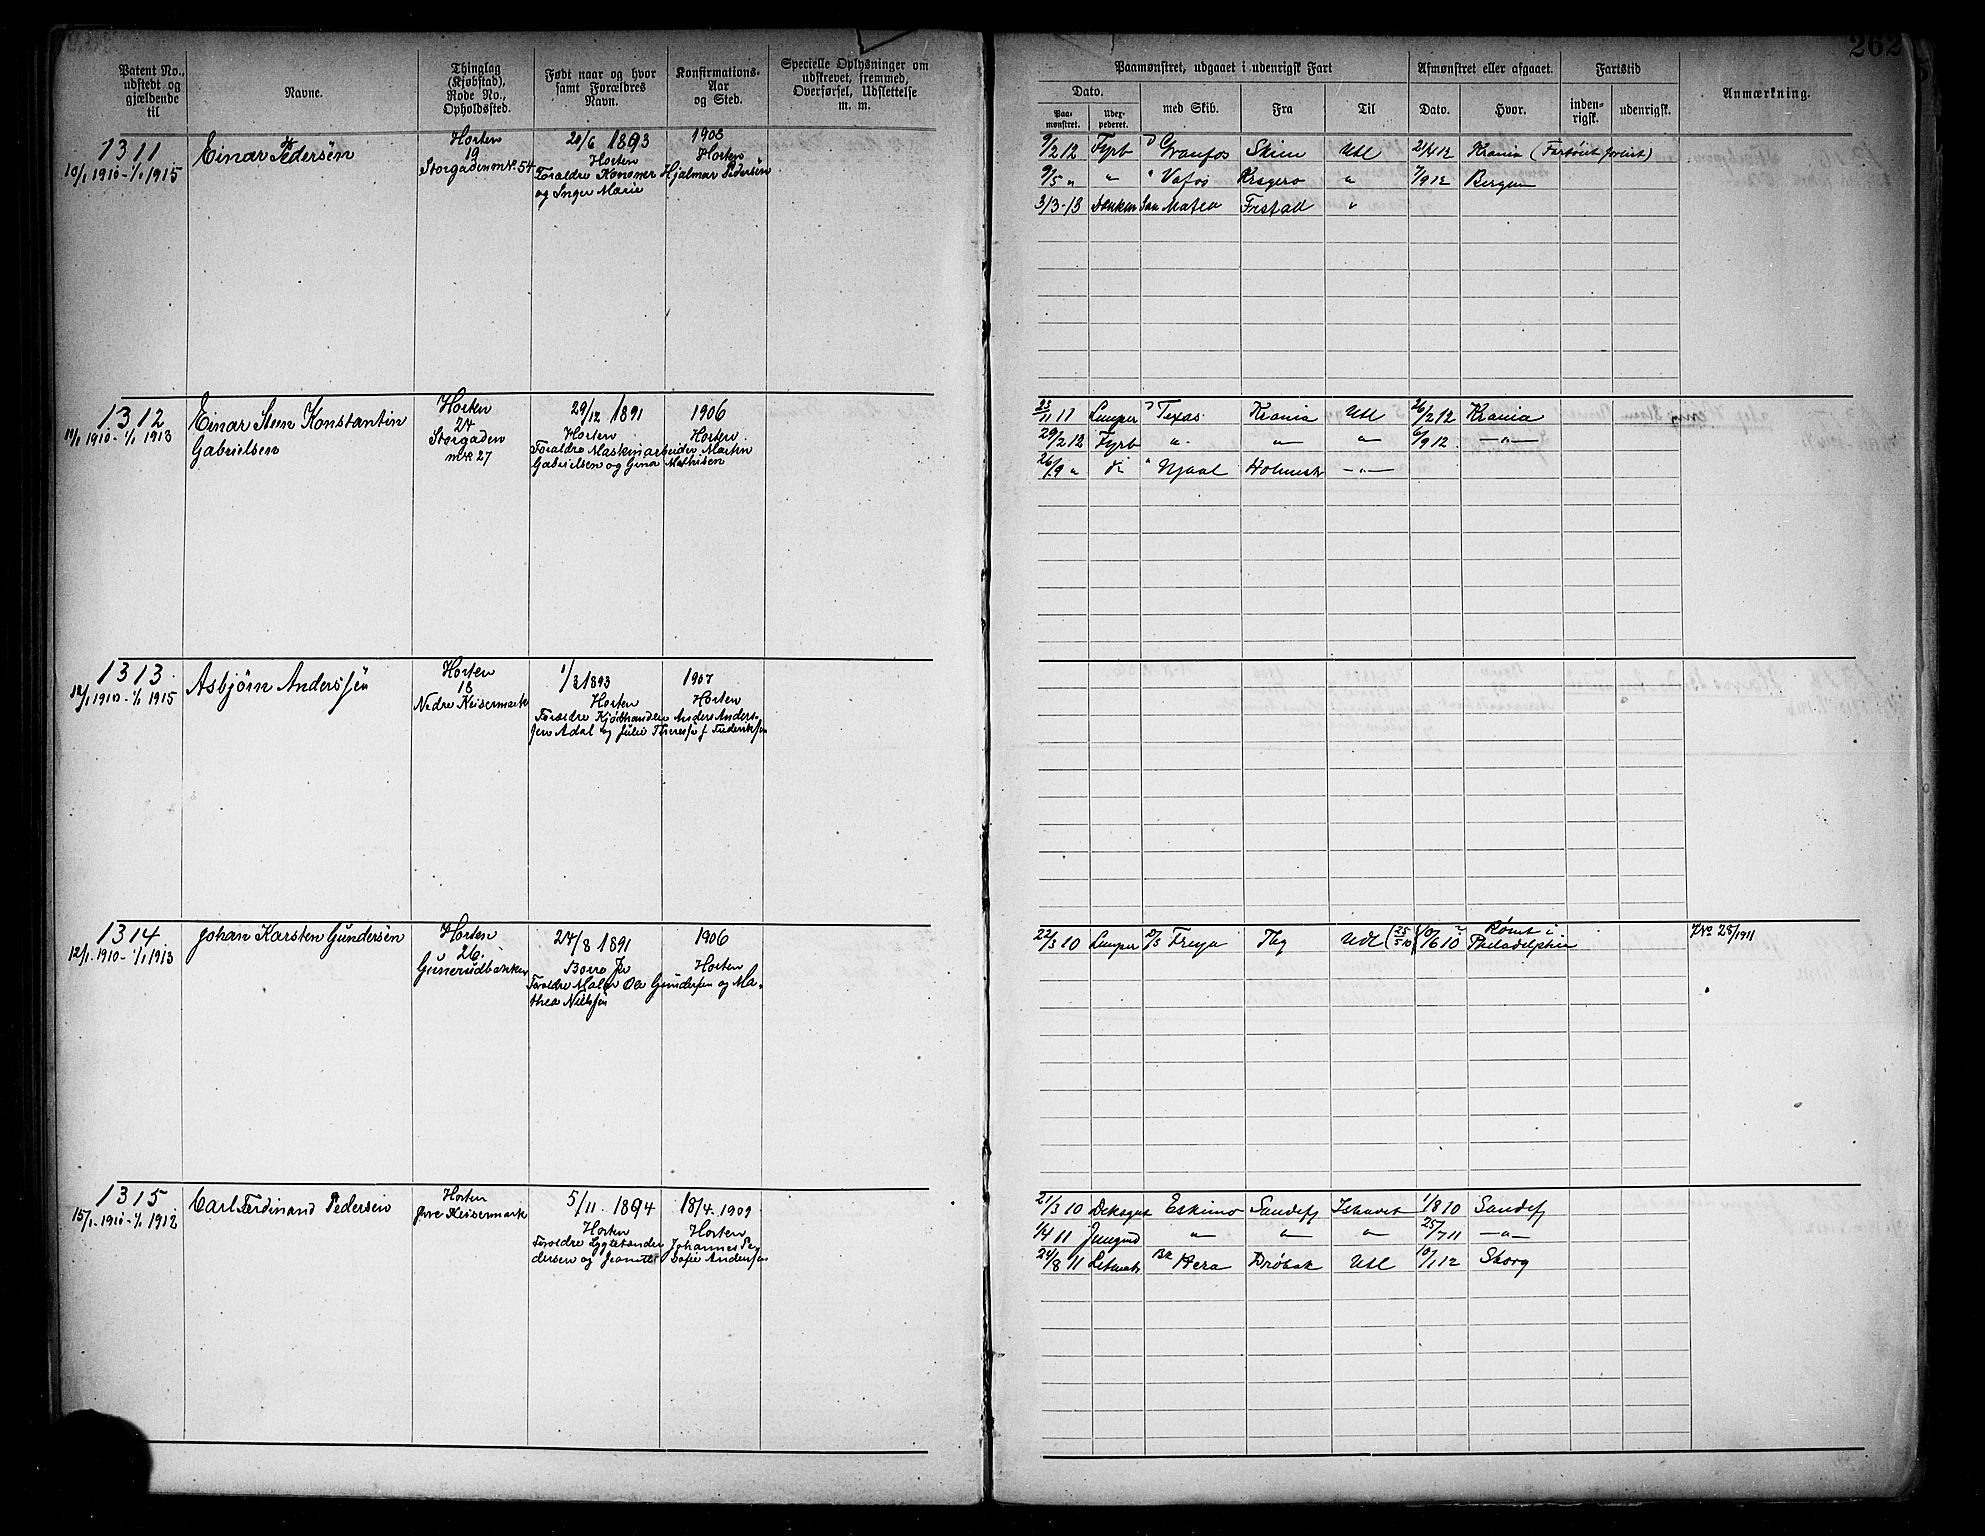 262
Patent No., udstedt og gjældende til
Navne.
Thinglag (Kjøbstad), Rode No., Opholdssted.
Født naar og hvor samt Forældres Navn.
Konfirmations-Aar og Sted.
Specielle Oplysninger om udskrevet, fremmed, Overførsel, Udslettelse m. m.
Paamønstret, udgaaet i udenrigsk Fart
Afmønstret eller afgaaet.
Fartstid
Anmærkning.
Dato.
med Skib.
Fra
Til
Dato.
Hvor.
inden-rigsk.
udenrigsk.
Paa-mønstret.
1311
10/1 1910 - 1/1 1915
Einar Pedersen
Horten
19
Storgaden mk. 54
20/6 1893
Horten
Forældre Kanoner Hjalmar Pedersen
og Inger Marie
1908
Horten
9/2 12 Fyrb D Granfos Skien Utl 21/4 12 Krania
9/5 " " " Vafos Kragerø " 7/9 12 Bergen
3/3-13 San Mateo Frstad "
1312
11/1 1910 - 1/1 1913
Einar Steen Konstantin
Gabrielsen
Horten
24
Storgaden
mk 27
29/12 1891
Horten
Forældre Maskinarbeider Martin
Gabrielsen og Gina Mathisen
1906
Horten
23/11 11 Lemper D Texas Krania Utl 26/2 12 Krania
29/2 12 Fyrb " " " 6/9 12 —"—
26/9 " " Njaal Holmestr —"—
1313
12/1 1910 - 1/1 1915
Asbjørn Anderssen
Horten
18
Nedre Keisermark
1/3 1893
Horten
Forældre Kjødhandler Anders Anders-
sen Adal og Julie Theresie f Frederiksen
1907
Horten
1314
12/1 1910 - 1/1 1913
Johan Karsten Gundersen
Horten
26.
Gunerudbakken
24/8 1891
Borre
Forældre Maler Ole Gundersen og Ma-
thea Nielsen
1906
Horten
22/3 10 Lemper Freya Tbg Udl (25/5 10) 10/6 10 Rømt i
Philadelphia
No 25/1911
1315
15/1 1910 - 1/1 1912
Carl Ferdinand Pedersen
Horten
Øvre Keisermark
5/11 1894
Horten
Forældre Lygtetænder Johannes Pe-
dersen og Jeanette Sofie Andersen
18/4 1909
Horten
21/3 10 Deksgut Eskimo Sandefj Ishavet 1/8 10 Sandefj
1/4 11 Jungmd " " " 25/7 11 —"—
24/8 11 Letmatr Bk Hera Drøbak Utl 10/1 12 Sborg